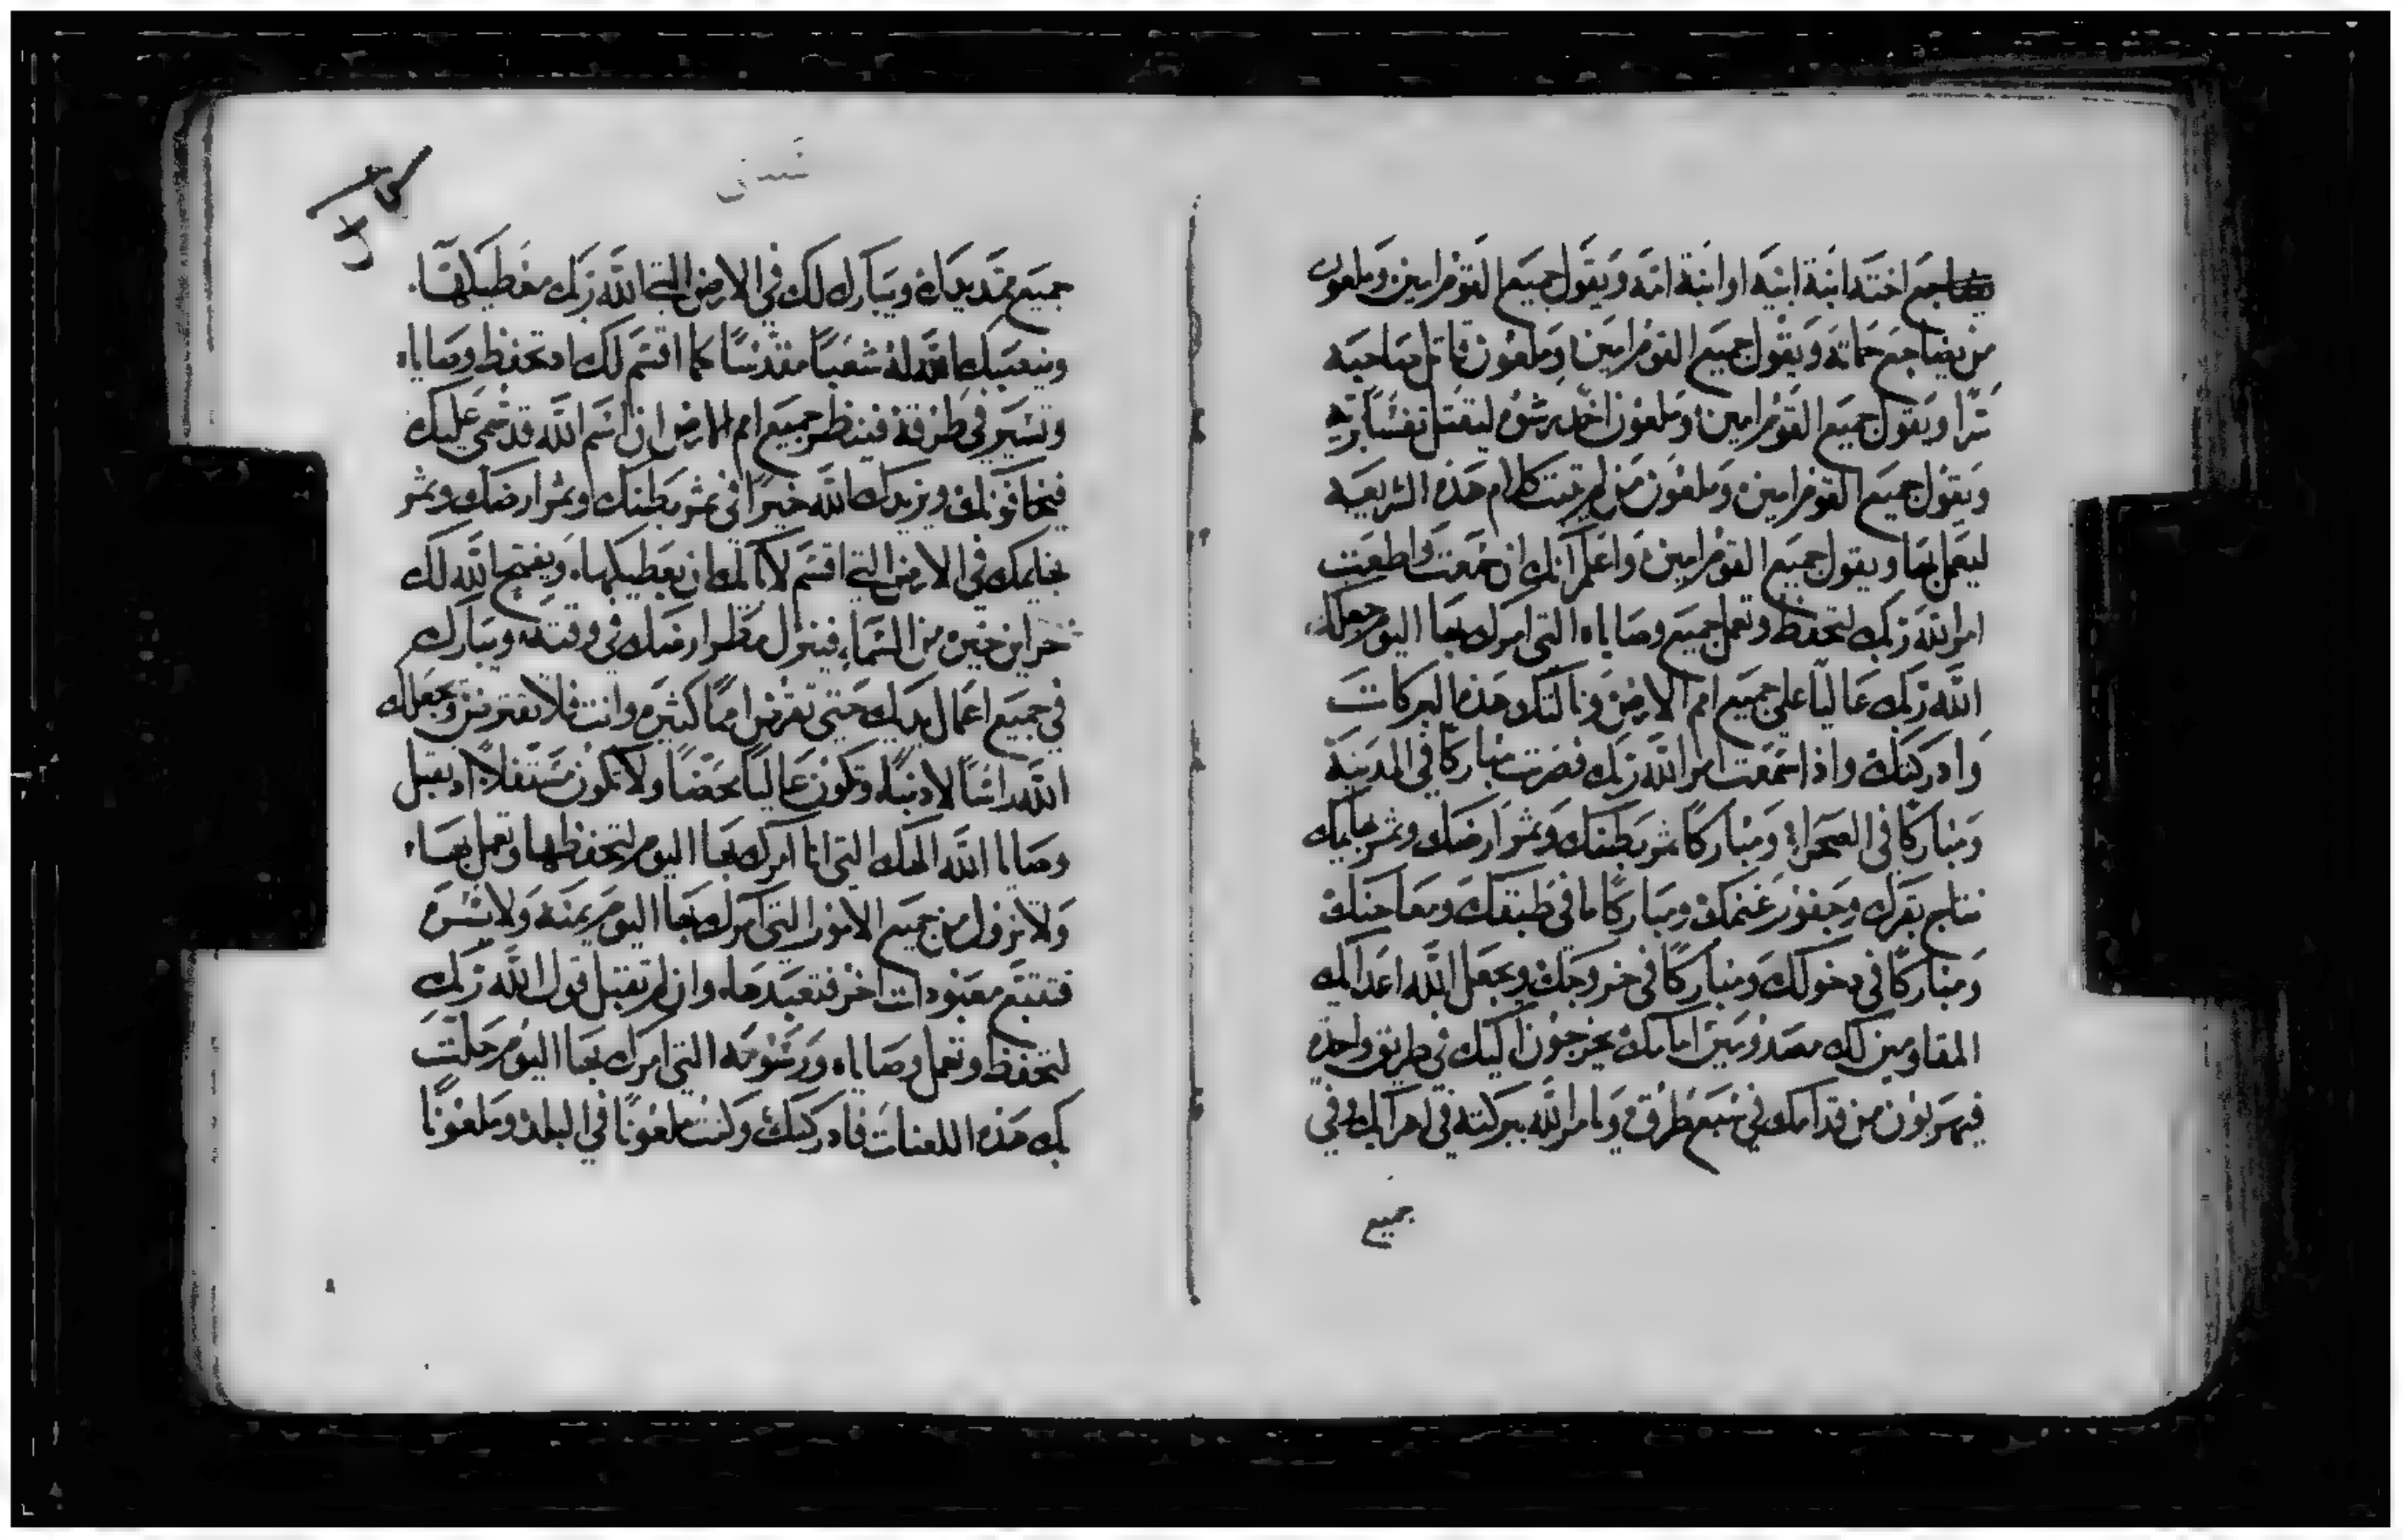 يضاجع اخته ابنة ابيه او ابنة امه ويقول جميع القوم امين وملعون
من يضاجع حماته ويقول جميع القوم امين وملعون قاتل صاحبه
سرًا ويقول جميع القوم امين وملعون اخد رشوه ليقتل نفسًا
ويقول جميع القوم امين وملعون من لم يثبت كلام هذه الشريعه
ليعمل بها ويقول جميع القوم امين واعلم انك ان سمعت واطعت
امر الله ربك لتحفظ وتعمل جميع وصاياه التي امرك بها اليوم جعلك
الله ربك عاليًا على جميع امم الارض ونالتك هذه البركات
وادركتك واذا سمعت امر الله ربك فصرت مباركًا في المدينة
ومباركًا في الصحراء ومباركًا ثمر بطنك وثمر ارضك وثمر بهايمك
نتاج بقرك وجفور غنمك ومباركًا ما في طبقك ومعاجنك
ومباركًا في دخولك ومباركًا في خروجك ويجعل الله اعدايك
المقاومين لك مصدومين امامك يخرجون اليك في طريق واحده
فيهربون من قدامك في سبع طرق ويامر الله ببركته في اهرايك وفي
جميع
جميع تمتد يداك ويبارك لك في الارض التي الله ربك معطيكها
ويثيبك الله له شعبًا مقدسًا كما اقسم لك اد تحفظ وصاياه
وتسير في طرقه فينظر جميع امم الارض ان اسم الله قد سمى عليك
فيخافونك ويزيدك الله خيرًا في ثمر بطنك وثمر ارضك وثمر
بهايمك في الارض التي اقسم لابايك ان يعطيكها ويفتح الله لك
خزاين خيره من السماء فينزل مطر ارضك في وقته ويبارك
في جميع اعمال يديك حتى تقرض اممًا كثيره وانت فلا تقترض ويجعلك
الله راسًا لا دنبًا وتكون عاليًا محضًا ولا تكون مستفلاً اد تقبل
وصايا الله الهك التي انا امرك بها اليوم لتحفظها وتعمل بها
ولا تزول من جميع الامور التي امرك بها اليوم يمنه ولا يسره
فتتبع معبودات اخر فتعبدها وان لم تقبل قول الله ربك
لتحفظ وتعمل وصاياه ورسومه التي امرك بها اليوم حلت
بك هذه اللعنات فادركتك وكنت ملعونًا في البلد وملعونًا